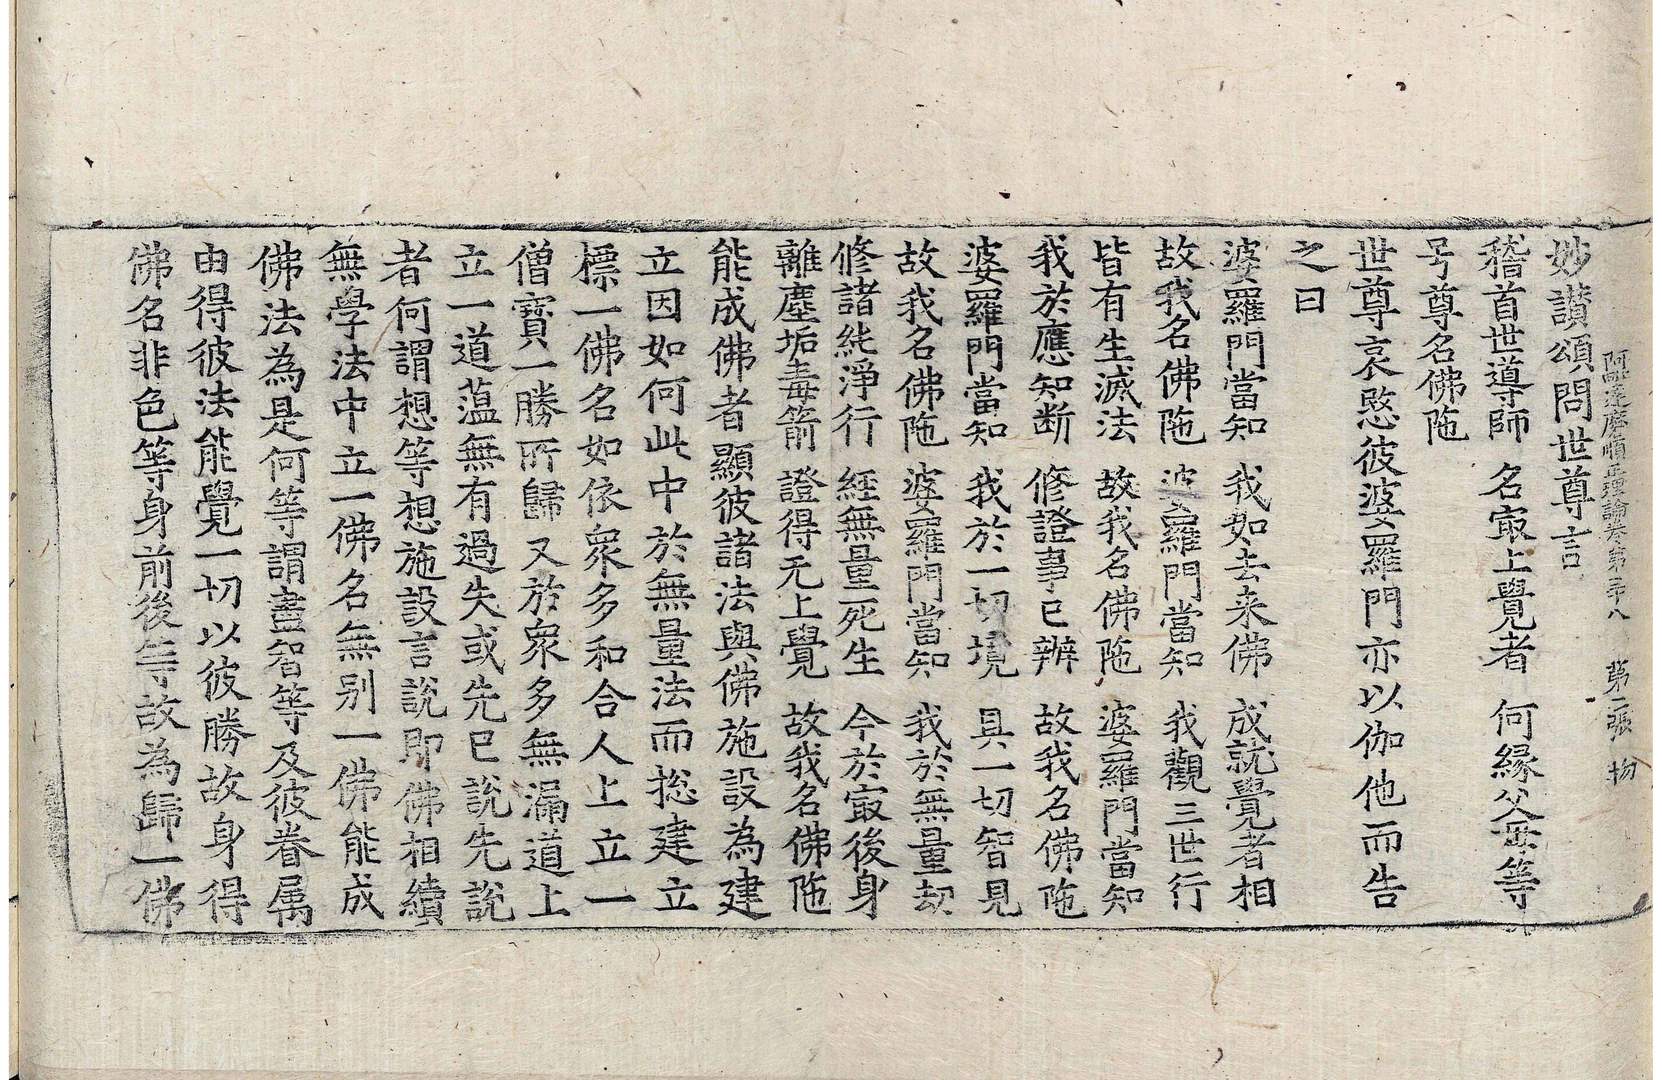 阿毗達磨順正理論卷第三十八　第二張　物
妙讃頌問世尊言
稽首世導師　名㝡上覺者　何緣父母等
号尊名佛陁
世尊哀愍彼婆羅門亦以伽他而告
之曰
婆羅門當知　我如去来佛　成就覺者相
故我名佛陁　婆羅門當知　我觀三世行
皆有生滅法　故我名佛陁　婆羅門當知
我於應知断　修證事已辦　故我名佛陁
婆羅門當知　我於一切境　具一切智見
故我名佛陁　婆羅門當知　我於無量劫
修諸純淨行　經無量死生　今於㝡後身
離塵垢毒箭　證得无上覺　故我名佛陁
能成佛者顯彼諸法與佛施設為建
立因如何此中於無量法而捴建立
標一佛名如依衆多和合人上立一
僧寶一勝所歸又於衆多無漏道上
立一道蕰無有過失或先已說先說
者何謂想等想施設言說即佛相續
無學法中立一佛名無别一佛能成
佛法為是何等謂盡智等及彼眷属
由得彼法能覺一切以彼勝故身得
佛名非色等身前後等故為歸一佛